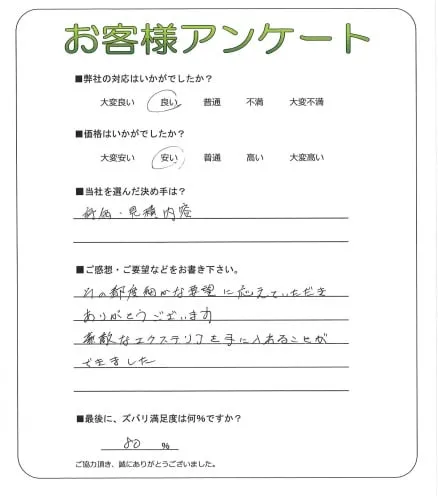 お客様アンケート
■弊社の対応はいかがでしたか?
大変良い 良い 普通 不満 大変不満
■価格はいかがでしたか?
大変安い 安い 普通 高い 大変高い
■当社を選んだ決め手は?
評価・見積内容
■ご感想・ご要望などをお書き下さい。
その都度細かな要望に応えていただき
ありがとうございます
素敵なエクステリアを手に入れることが
できました
■最後に、ズバリ満足度は何%ですか?
80 %
ご協力頂き、誠にありがとうございました。